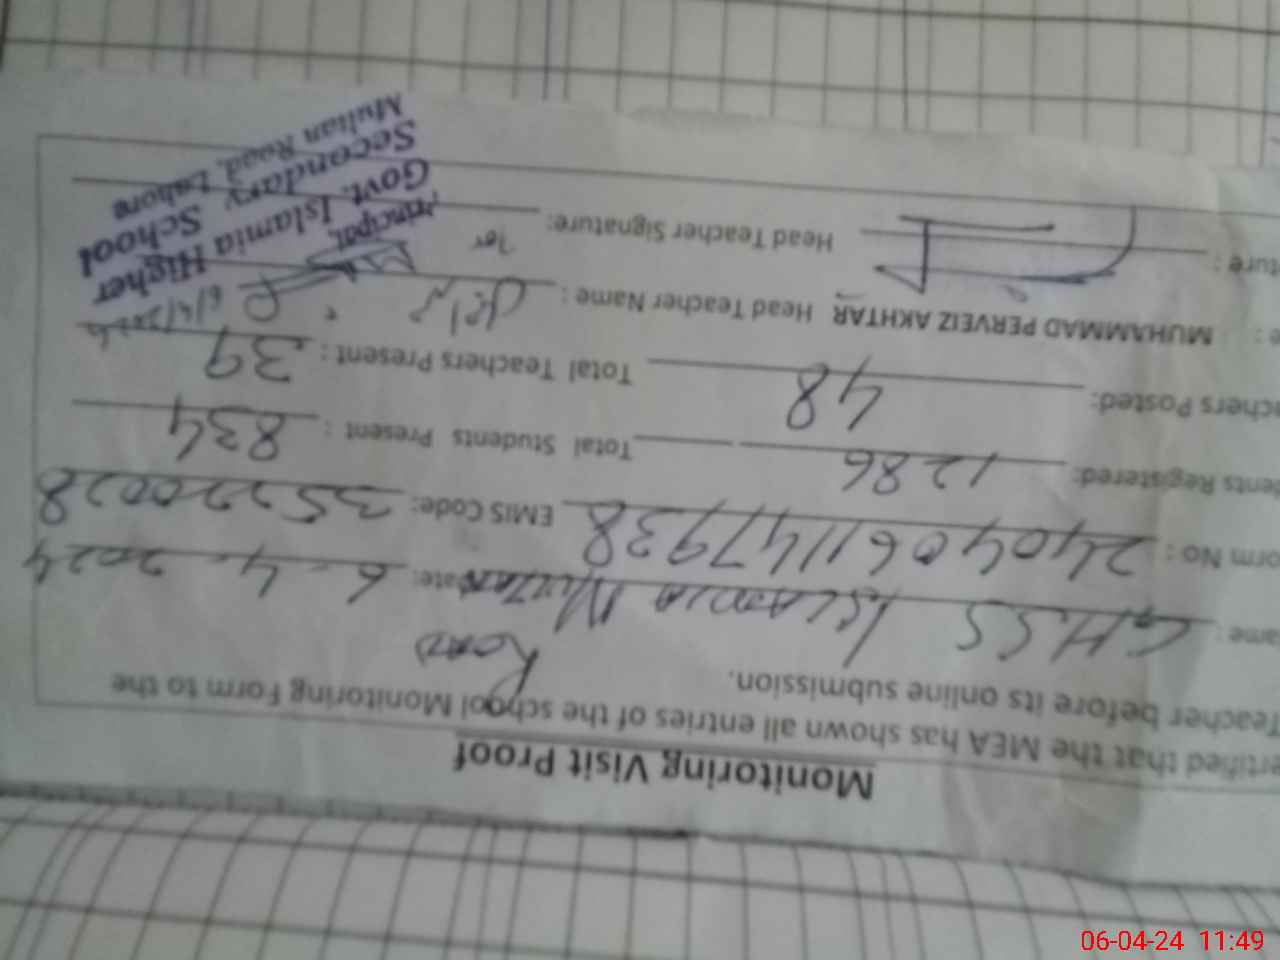 Monitoring Visit Proof
rtified that the MEA has shown all entries of the school Monitoring Form to the
Teacher before its online submission.
ame : G.H.SS ISLAMIA MULTAN Date: 6-4-2024
ROAD
orm No : 2404061147938 EMIS Code: 35220028
ents Registered: 1286 Total Students Present : 834
chers Posted: 48 Total Teachers Present : 39
e : MUHAMMAD PERVEIZ AKHTAR Head Teacher Name :
ture : Head Teacher Signature:
6/4/2024
Principal,
Govt. Islamia Higher
Secondary School
Multan Road, Lahore
06-04-24 11:49